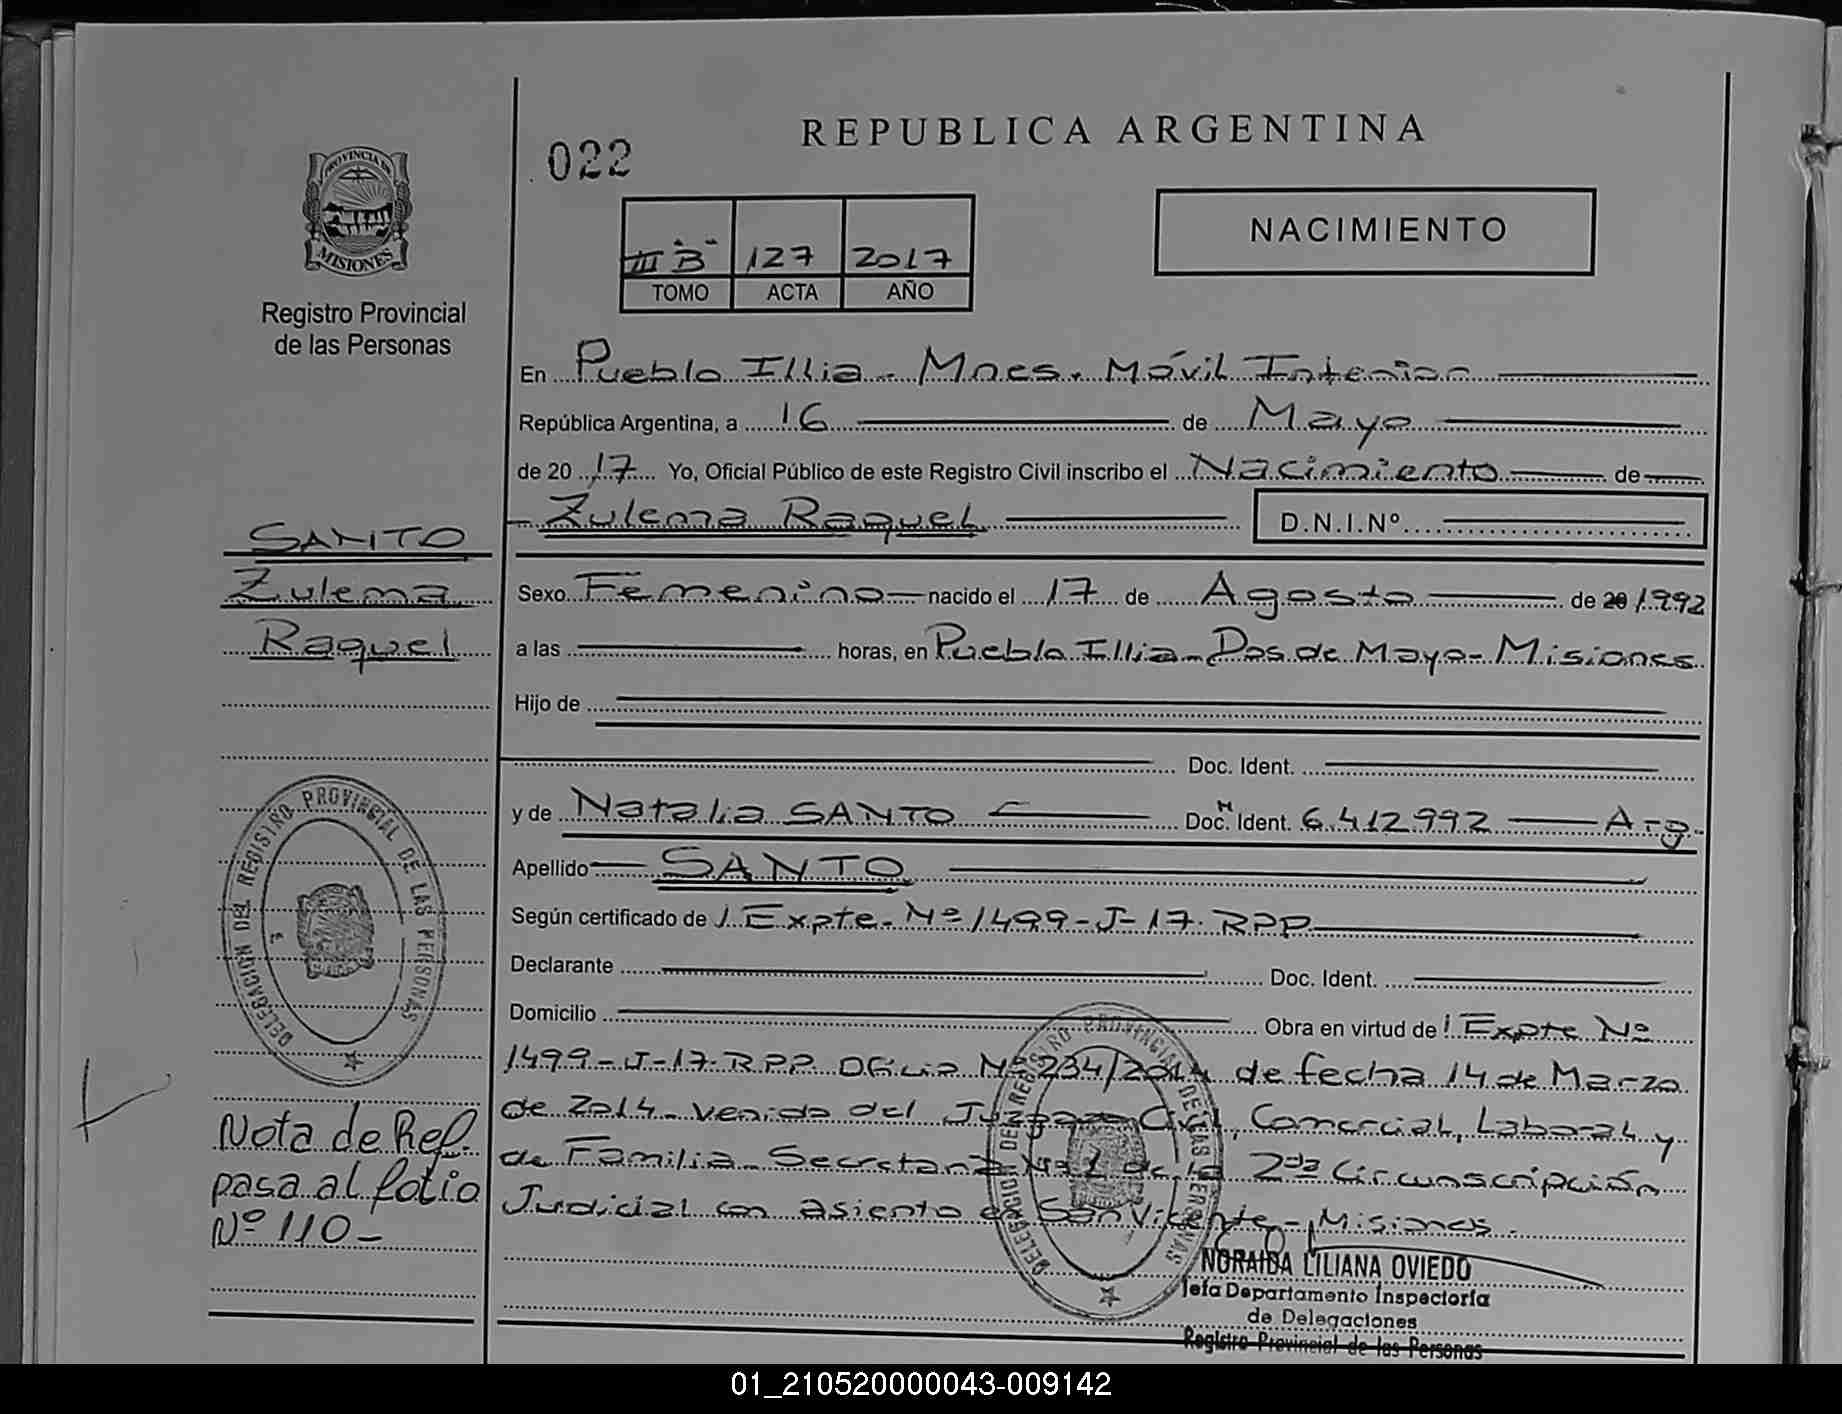 REPUBLICA ARGENTINA
022
NACIMIENTO
III "B" 127 2017
TOMO ACTA AÑO
PROVINCIA DE
MISIONES
Registro Provincial
de las Personas
En Pueblo Illia - Mnes. Móvil Interior
República Argentina, a 16 de Mayo
de 20 17 Yo, Oficial Público de este Registro Civil inscribo el Nacimiento de
Zulema Raquel D.N.I.Nº
SANTO
Zulema
Raquel
Sexo Femenino nacido el 17 de Agosto de 20 1992
a las horas, en Pueblo Illia - Dos de Mayo - Misiones
Hijo de
Doc. Ident.
y de Natalia SANTO Doc. Ident. M 6.412.992 Arg.
Apellido SANTO
Según certificado de Expte. Nº 1499-J-17. RPP
Declarante Doc. Ident.
Domicilio Obra en virtud de Expte Nº
1499-J-17-RPP Oficio Nº 234/2014 de fecha 14 de Marzo
de 2014 - venido del Juzgado Civil, Comercial, Laboral y
de Familia - Secretaria Nº 1 de la 2da Circunscripción
Judicial con asiento en San Vicente - Misiones.
DELEGACIÓN DEL REGISTRO PROVINCIAL DE LAS PERSONAS
Nota de Ref.
pasa al folio
Nº 110 -
DELEGACIÓN DEL REGISTRO PROVINCIAL DE LAS PERSONAS
NORAIDA LILIANA OVIEDO
Jefa Departamento Inspectoría
de Delegaciones
Registro Provincial de las Personas
01_210520000043-009142